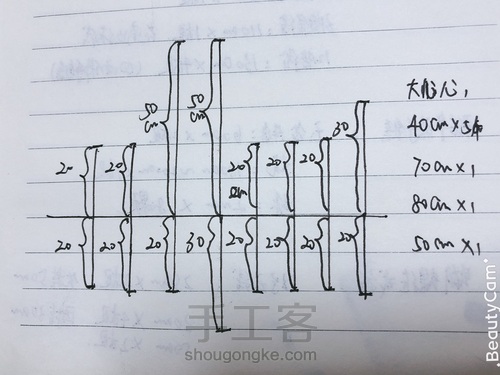 50
cm
50
cm
30
20
20
20
cm
20
20
20
20
20
30
20
20
20
20
40cm×5条
70cm×1
80cm×1
50cm×1
手工客
shougongke.com
BeautyCam